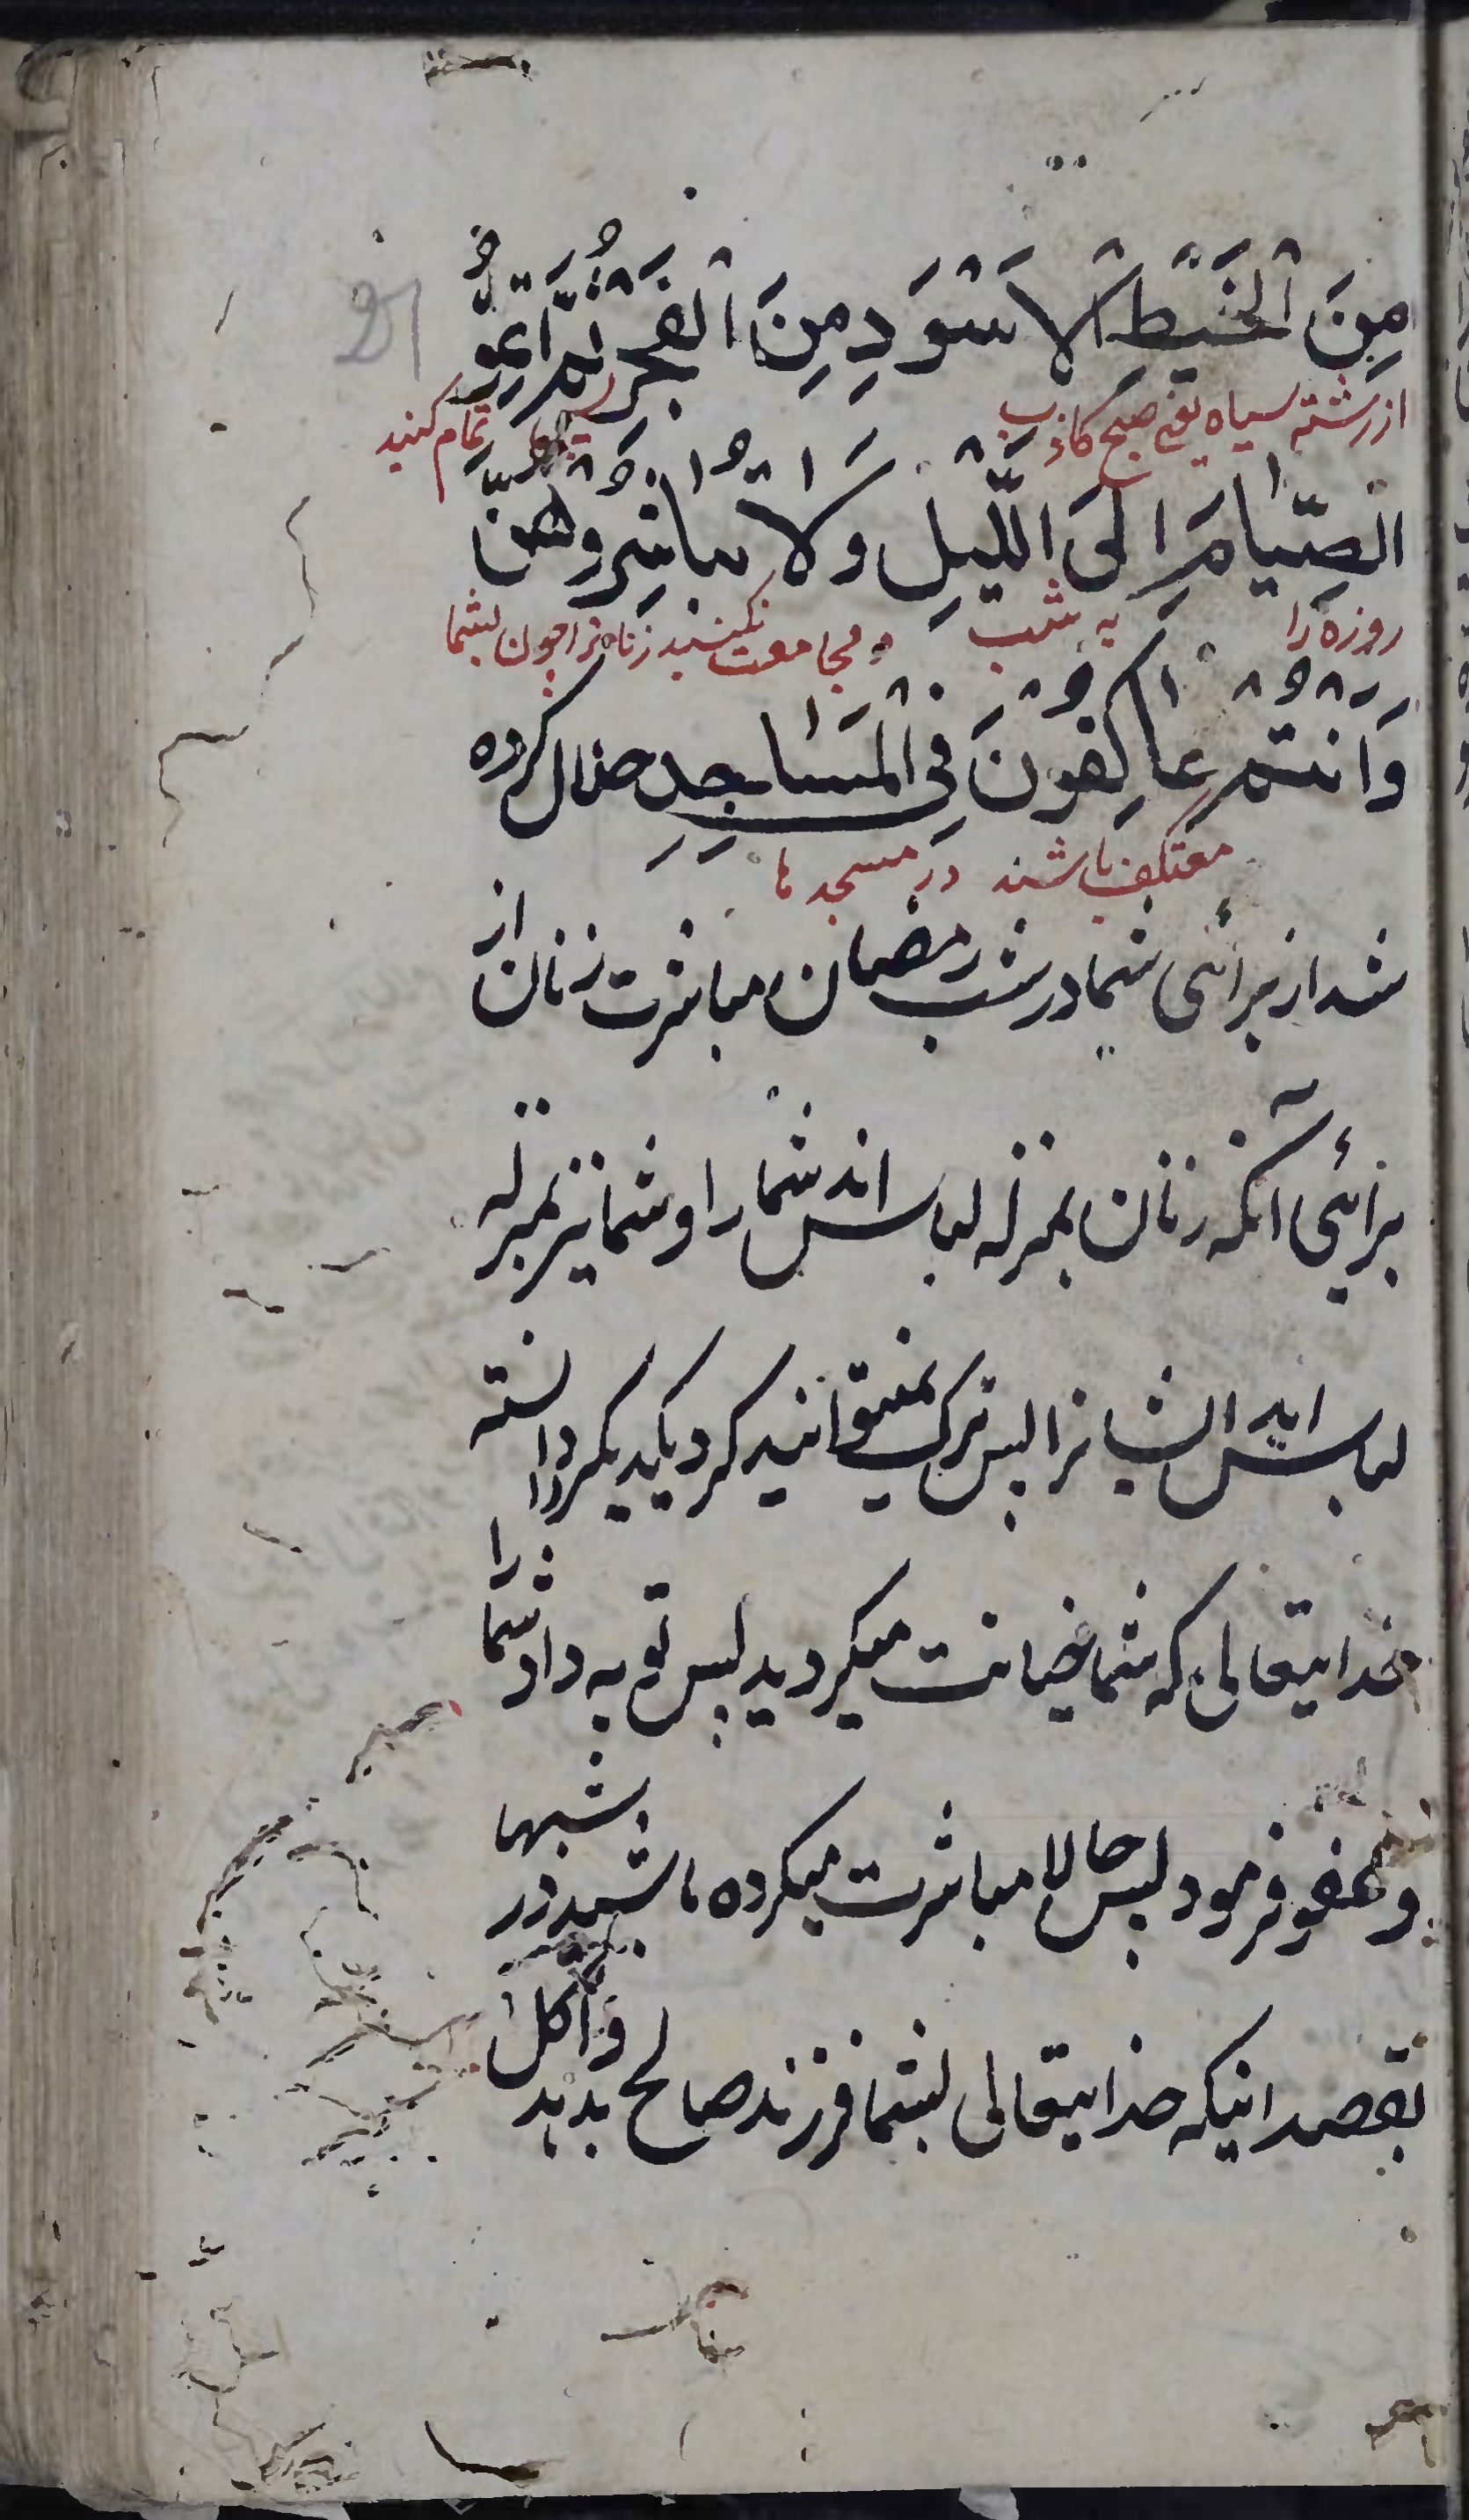 مِنَ الْخَيْطِ الْاَسْوَدِ مِنَ الْفَجْرِ ثُمَّ اَتِمُّو
از رشته سیاه یعنی صبح کاذب تمام کنید
الصِّیَامَ اِلَی الَّلیْلِ وَلَا تُبَاشِرُوهُنَّ
روزه را به شب و مجامعت نکنید زنانرا چون بشما
وَاَنْتُمْ عَاکِفُوْنَ فِی الْمَسَاجِدِ حلال کرده
معتکف باشند در مسجد ها
شد از برائی شما در شب رمضان مباشرت زنان از
برائی آنکه زنان بمنزله لباس اند شما را و شما نیز بمنزله
لباس اید ایشانرا پس ترک نمیتوانید کرد یکدیگر را دانسته
خدایتعالی که شما خیانت میکردید پس توبه داد شما را
و عفو فرمود پس حالا مباشرت میکرده باشید در شبها
بقصد اینکه خدایتعالی بشما فرزند صالح بدهد و اکل